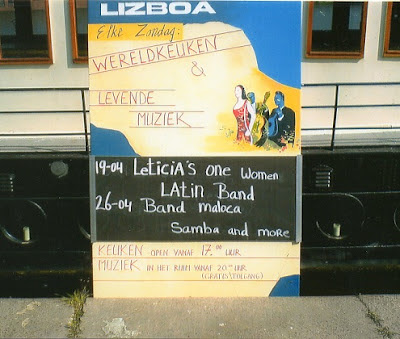 LIZBOA
Elke Zondag:
WERELDKEUKEN
&
LEVENDE
MUZIEK
19-04 LETICIA'S one women
LATin Band
26-04 Band maloca
Samba and more
KEUKEN OPEN VANAF 17.00 UUR
MUZIEK IN HET RUIM VANAF 20.00 UUR
(GRATIS TOEGANG)